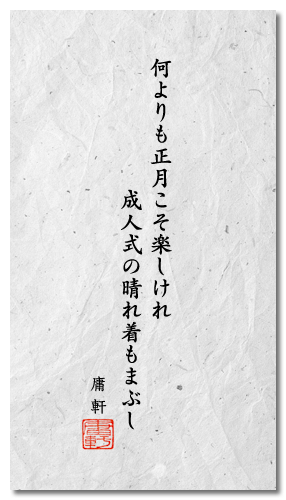 何よりも正月こそ楽しけれ
成人式の晴れ着もまぶし
庸軒
庸軒